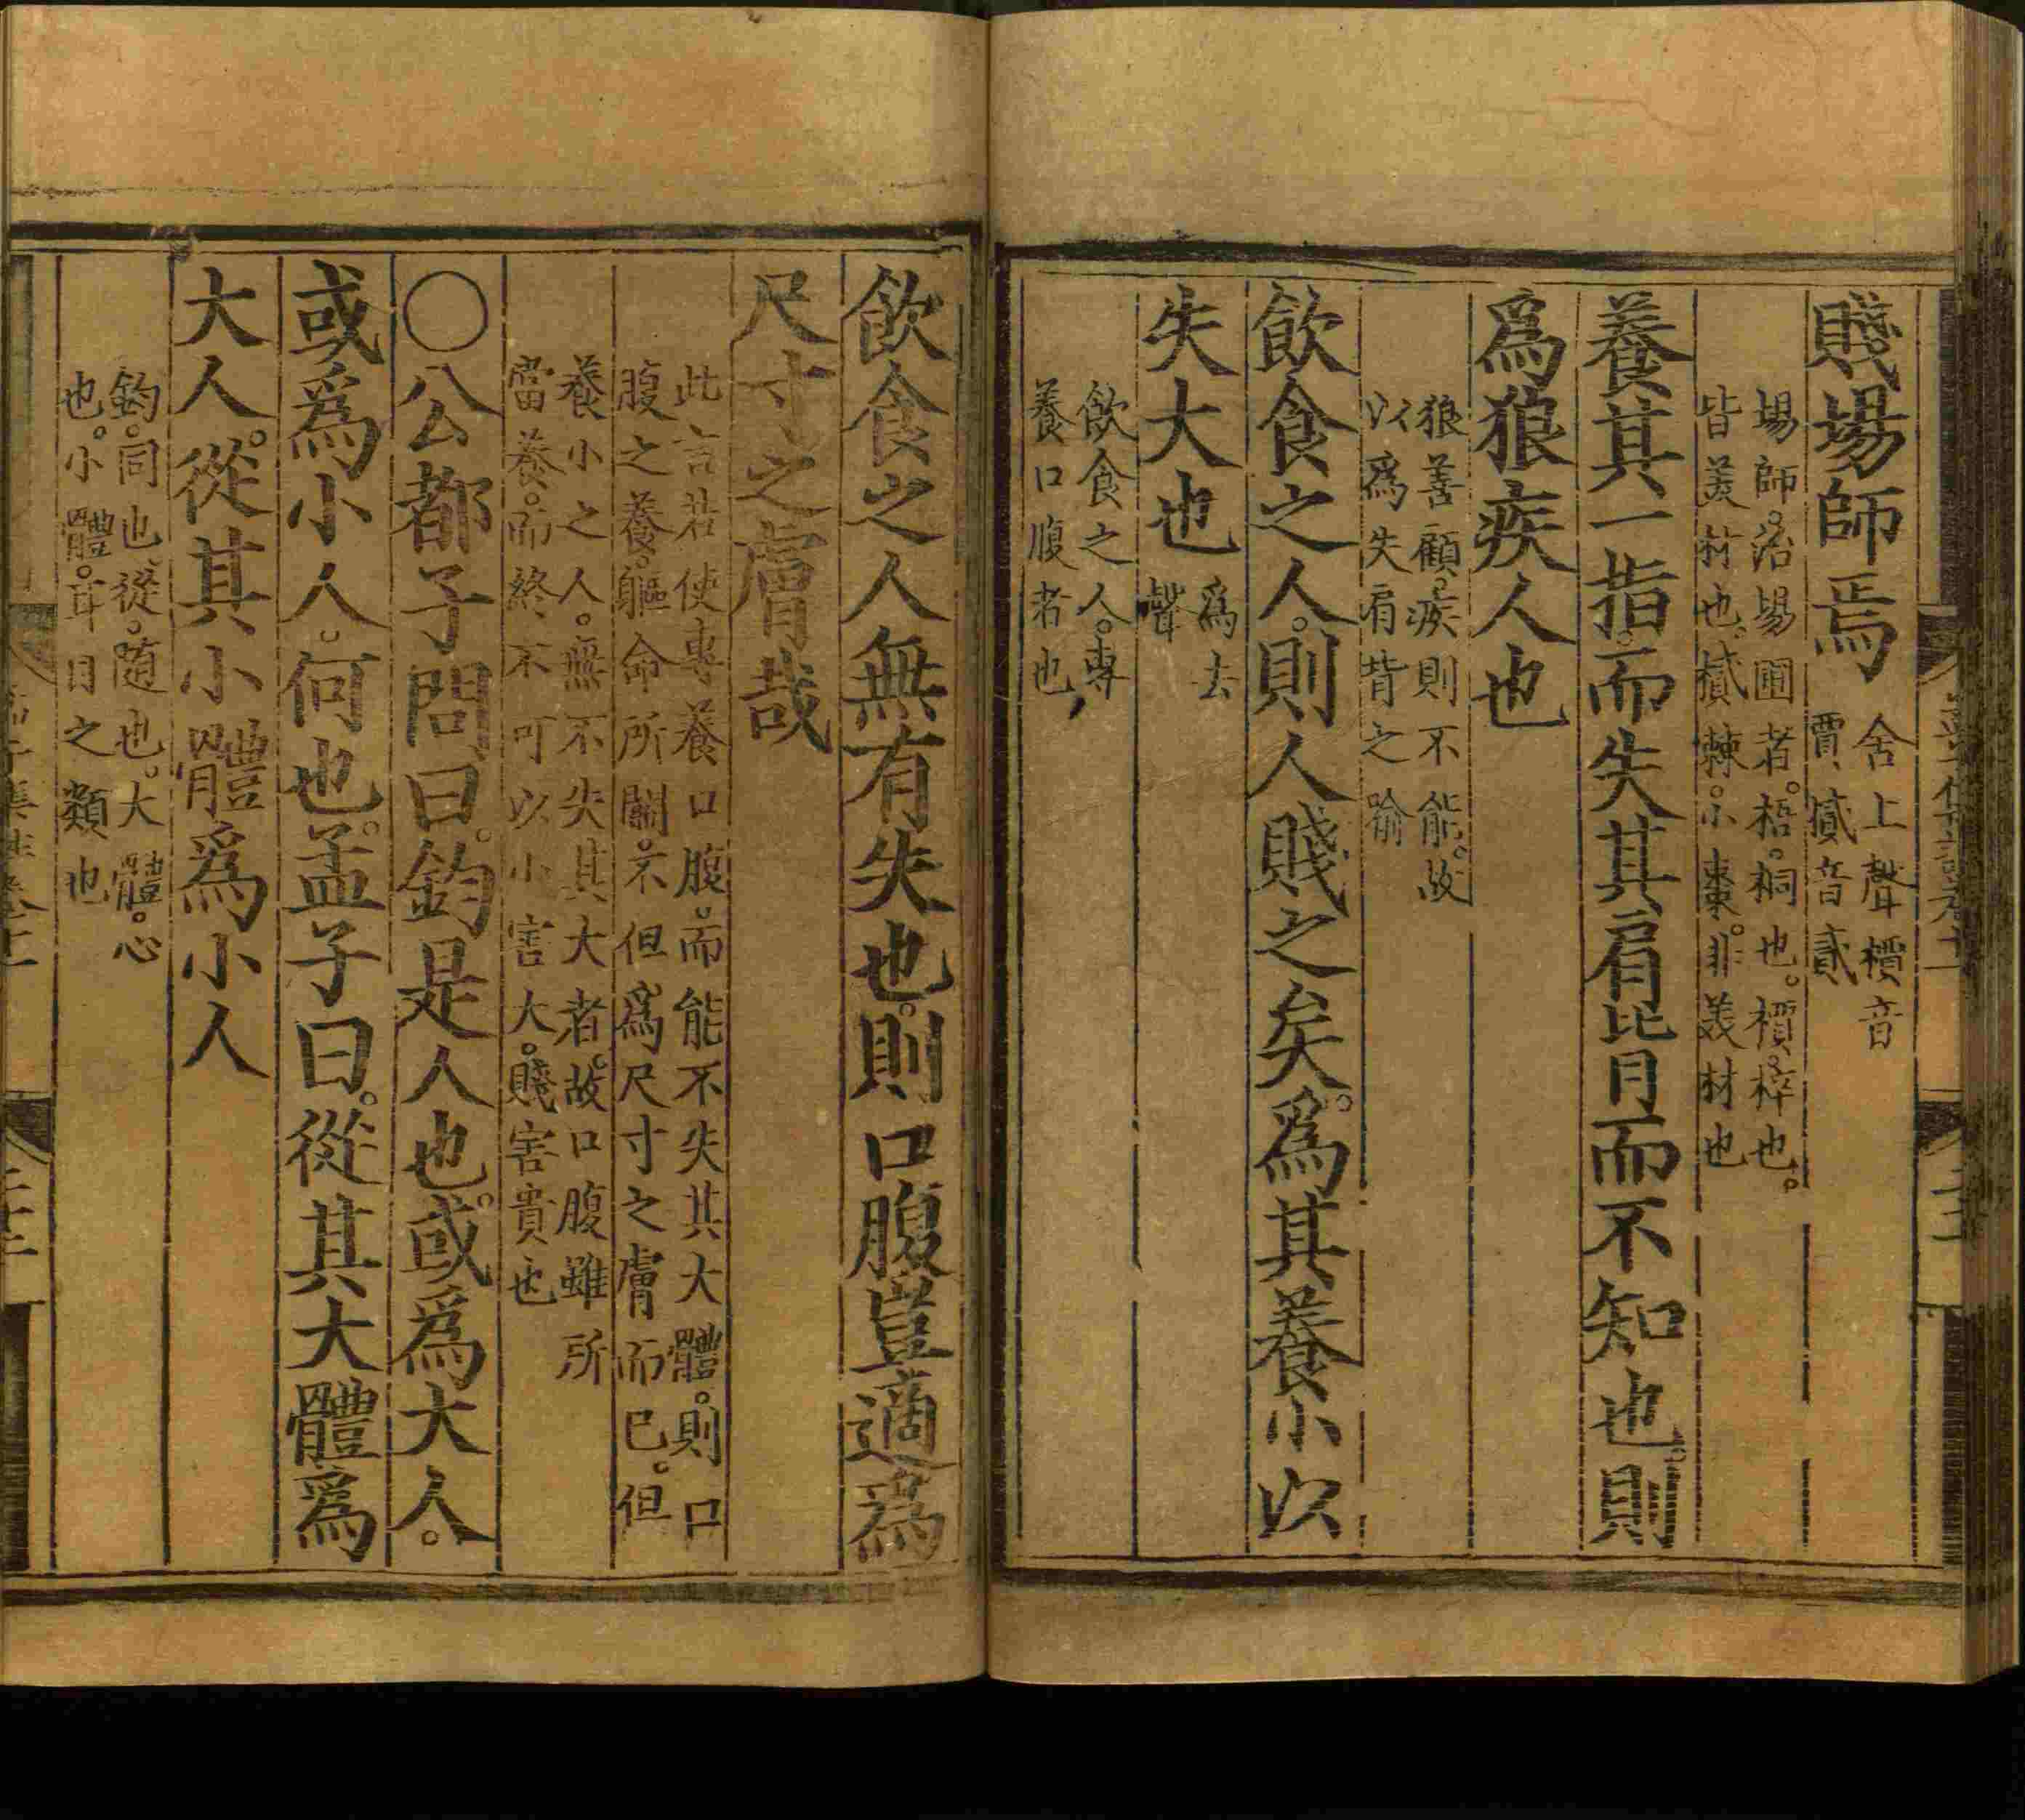 賤場師焉
舍上聲檟音
賈樲音貳
場師。治場圃者。梧。桐也。檟。梓也。
皆美材也。樲棘。小棗。非美材也
養其一指。而失其肩背而不知也。則
爲狼疾人也
狼善顧。疾則不能。故
以爲失肩背之喻
飲食之人。則人賤之矣。爲其養小以
失大也
爲去
聲
飲食之人。專
養口腹者也
飲食之人無有失也。則口腹豈適爲
尺寸之膚哉
此言若使專養口腹。而能不失其大體。則口
腹之養。軀命所關。不但爲尺寸之膚而已。但
養小之人。無不失其大者。故口腹雖所
當養。而終不可以小害大。賤害貴也
〇公都子問曰。鈞是人也。或爲大人。
或爲小人。何也。孟子曰。從其大體爲
大人。從其小體爲小人
鈞。同也。從。随也。大體。心
也。小體。耳目之類也